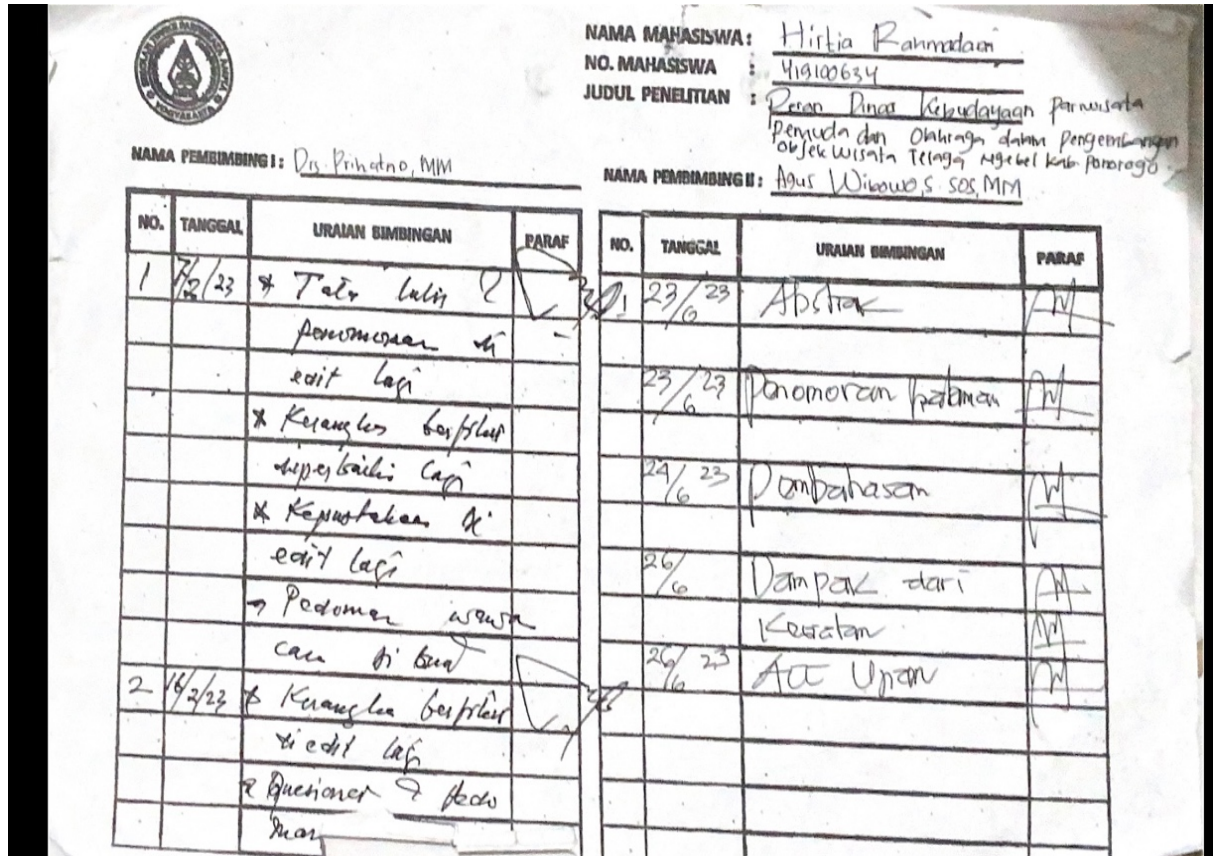 NAMA MAHASISWA : Hirtia Rahmadani
NO. MAHASISWA : 419100634
JUDUL PENELITIAN : Peran Dinas Kebudayaan Pariwisata
Pemuda dan Olahraga dalam Pengembangan
Objek Wisata Telaga Ngebel Kab. Ponorogo.
NAMA PEMBIMBING I : Drs. Prihatno, MM
NAMA PEMBIMBING II : Agus Wibowo, S. SOS, MM
NO. TANGGAL URAIAN BIMBINGAN PARAF
1 7/2/23 * Tata tulis &
penomoran di
edit lagi
* Kerangka berpikir
diperbaiki lagi
* Kepustakaan di
edit lagi
Pedoman wawan
cara di buat
2 16/2/23 * Kerangka berpikir
di edit lagi
Quesioner & pedo
man
NO. TANGGAL URAIAN BIMBINGAN PARAF
1 23/6 23 Abstrak
23/6 23 Penomoran halaman
24/6 23 Pembahasan
26/6 Dampak dari
Kegiatan
26/6 23 ACC Ujian